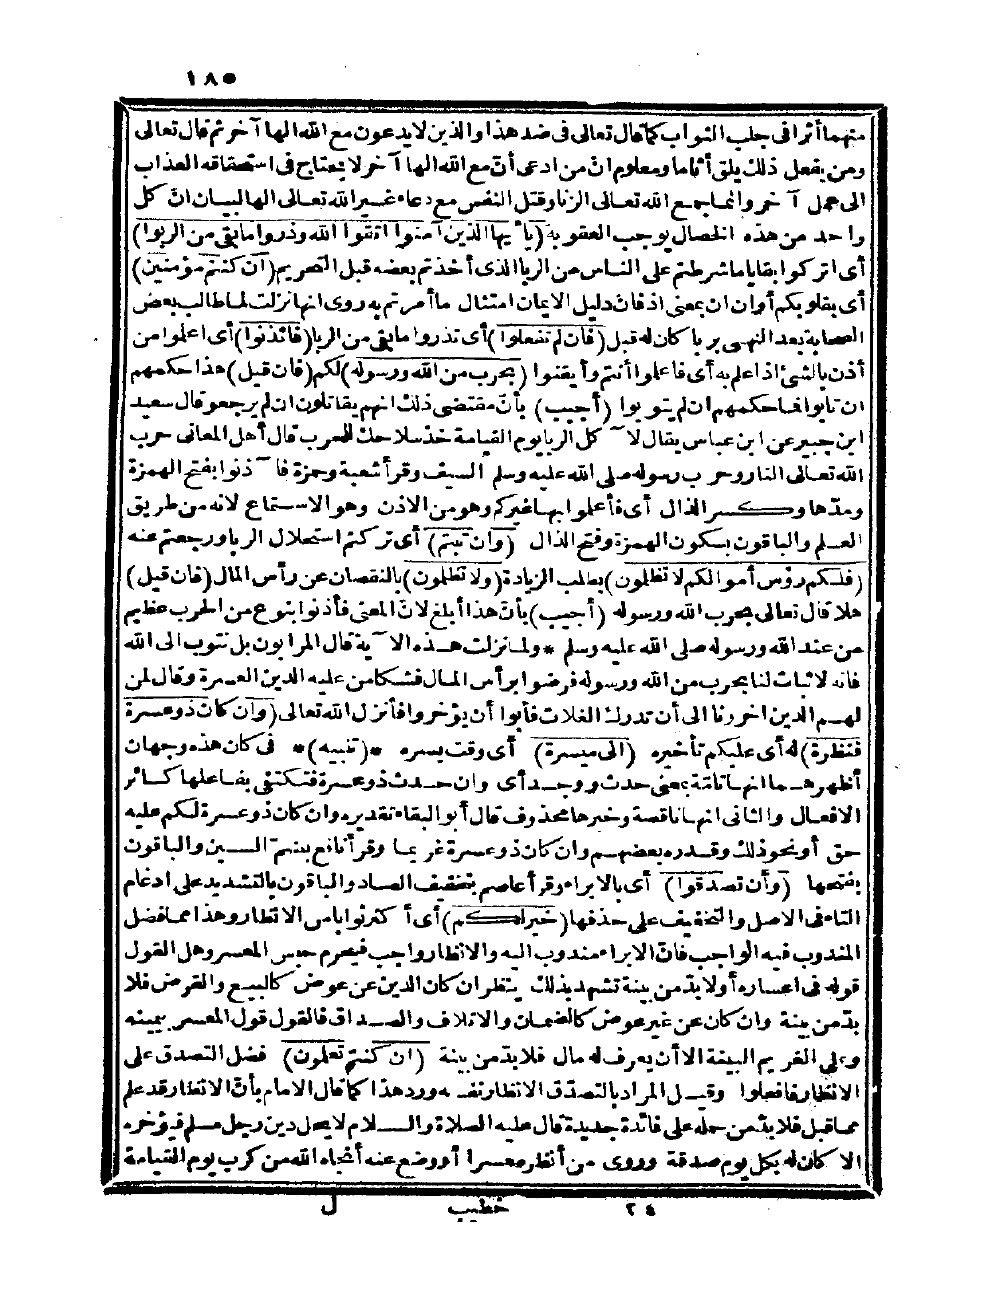 ١٨٥
منهما أثرا فى جلب الثواب كما قال تعالى فى ضد هذا والذين لا يدعون مع الله الها آخر ثم قال تعالى
ومن يفعل ذلك يلق أثاما ومعلوم انّ من ادعى أنّ مع الله الها آخر لا يحتاج فى استحقاقه العذاب
الى عمل آخر وانما جمع الله تعالى الزنا وقتل النفس مع دعاء غير الله تعالى الها لبيان انّ كل
واحد من هذه الخصال يوجب العقوبة (يا أيها الذين آمنوا اتقوا الله وذروا ما بقى من الربوا)
أى اتركوا بقايا ما شرطتم على الناس من الربا الذى أخذتم بعضه قبل التحريم (ان كنتم مؤمنين)
أى بقلوبكم أو ان ان بمعنى اذ فانّ دليل الايمان امتثال ما أمرتم به روى انها نزلت لما طالب بعض
الصحابة بعد النهى بربا كان له قبل (فان لم تفعلوا) أى تذروا ما بقى من الربا (فائذنوا) أى اعلموا من
أذن بالشئ اذا علم به أى فاعلموا أنتم وأيقنوا (بحرب من الله ورسوله) لكم (فان قيل) هذا حكمهم
ان تابوا فما حكمهم ان لم يتوبوا (أجيب) بأنّ مقتضى ذلك انهم يقاتلون ان لم يرجعوا قال سعيد
ابن جبير عن ابن عباس يقال لآكل الربا يوم القيامة خذ سلاحك للحرب قال أهل المعانى حرب
الله تعالى النار وحرب رسوله صلى الله عليه وسلم السيف وقرأ شعبة وحمزة فآذنوا بفتح الهمزة
ومدّها وكسر الذال أى فأعلموا بها غيركم وهو من الاذن وهو الاستماع لانه من طريق
العلم والباقون بسكون الهمزة وفتح الذال (وان تبتم) أى تركتم استحلال الربا ورجعتم عنه
(فلكم رؤس أموالكم لا تظلمون) بطلب الزيادة (ولا تظلمون) بالنقصان عن رأس المال (فان قيل)
هلا قال تعالى بحرب الله ورسوله (أجيب) بأنّ هذا أبلغ لانّ المعنى فأذنوا بنوع من الحرب عظيم
من عند الله ورسوله صلى الله عليه وسلم * ولما نزلت هذه الآية قال المرابون بل نتوب الى الله
فانه لا ثبات لنا بحرب من الله ورسوله فرضوا برأس المال فشكا من عليه الدين العسرة وقال لمن
لهم الدين اخرونا الى أن تدرك الغلات فأبوا أن يؤخروا فأنزل الله تعالى (وان كان ذو عسرة
فنظرة) له أى عليكم تأخيره (الى ميسرة) أى وقت يسره * (تنبيه) * فى كان هذه وجهان
أظهرهما انها تامّة بمعنى حدث ووجد أى وان حدث ذو عسرة فتكتفى بفاعلها كسائر
الافعال والثانى انها ناقصة وخبرها محذوف قال أبو البقاء تقديره وان كان ذو عسرة لكم عليه
حق أو نحو ذلك وقدره بعضهم وان كان ذو عسرة غريما وقرأ نافع بضمّ السين والباقون
بفتحها (وأن تصدقوا) أى بالابراء وقرأ عاصم بتخفيف الصاد والباقون بالتشديد على ادغام
التاء فى الاصل والتخفيف على حذفها (خير لكم) أى أكثر ثوابا من الانظار وهذا مما فضل
المندوب فيه الواجب فانّ الابراء مندوب اليه والانظار واجب فيحرم حبس المعسر وهل القول
قوله فى اعساره أو لا بدّ من بينة تشهد بذلك ينظر ان كان الدين عن عوض كالبيع والقرض فلا
بدّ من بينة وان كان عن غير عوض كالضمان والاتلاف والصداق فالقول قول المعسر بيمينه
وعلى الغريم البينة الا أن يعرف له مال فلا بدّ من بينة (ان كنتم تعلمون) فضل التصدق على
الانظار فافعلوا وقيل المراد بالتصدّق الانظار نفسه ورد هذا كما قال الامام بأنّ الانظار قد علم
مما قبل فلا بدّ من حمله على فائدة جديدة قال عليه الصلاة والسلام لا يحل دين رجل مسلم فيؤخره
الا كان له بكل يوم صدقة وروى من أنظر معسرا أو وضع عنه أنجاه الله من كرب يوم القيامة
٢٤ خطيب ل